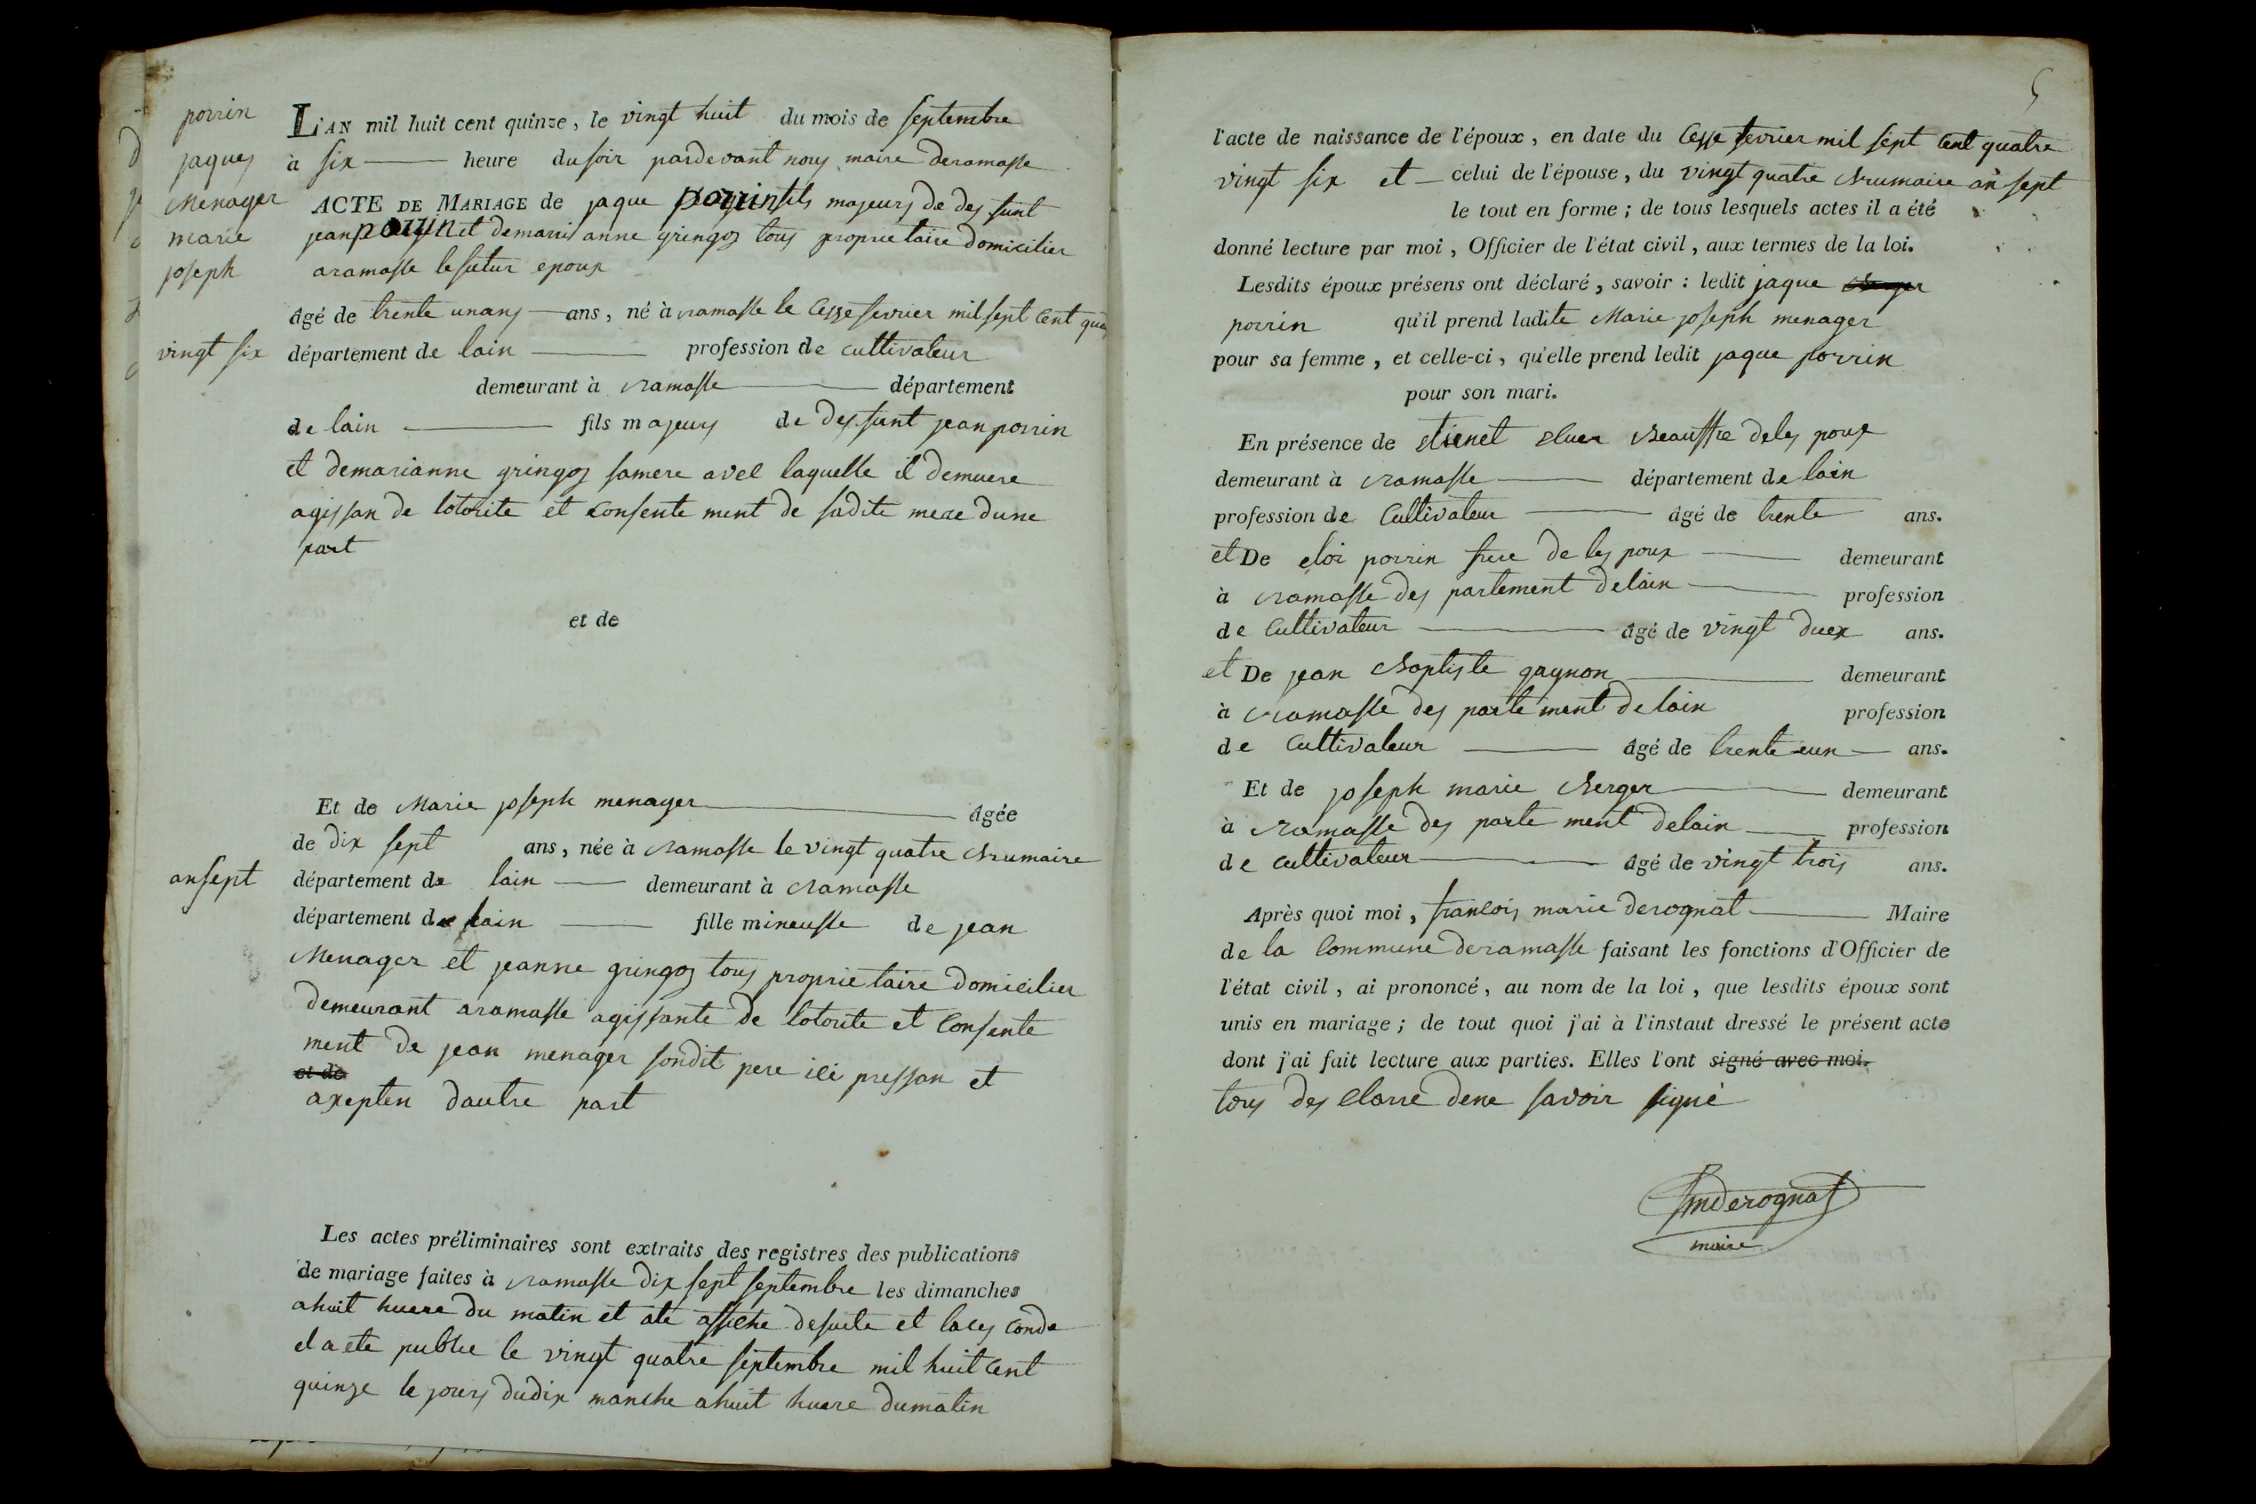 porrin
jaques
menager
marie
joseph
L'AN mil huit cent quinze, le vingt huit du mois de septembre
à six heure du soir pardevant nous maire deramasse
ACTE DE MARIAGE de jaque porrin fils majeurs de des funt
jean porrin et demarie anne gringoz tous proprietaire domicilier
aramasse le futur epoux
âgé de trente unans ans, né à ramasse le cesse fevrier mil sept cent qua
vingt six
département de lain profession de cultivateur
demeurant à ramasse département
de lain fils majeurs de des funt jean porrin
et demarianne gringoz samere avec laquelle il demuere
agissan de lotorite et consente ment de sadite mere dune
part
et de
Et de Marie joseph menager âgée
de dix sept ans, née à ramasse le vingt quatre brumaire
an sept
département de lain demeurant à ramasse
département de lain fille mineusse de jean
Menager et jeanne gringoz tous proprietaire domicilier
demeurant aramasse agissante de lotorite et consente
ment de jean menager sondit pere ici pressan et
et de
axepten dautre part
Les actes préliminaires sont extraits des registres des publications
de mariage faites à ramasse dix sept septembre les dimanches
ahuit huere du matin et ate affiche desuite et lases conde
el a ete publie le vingt quatre septembre mil huit cent
quinze le jours dudix manche ahuit huere dumatin
5
l'acte de naissance de l'époux, en date du cesse fevrier mil sept cent quatre
vingt six et celui de l'épouse, du vingt quatre brumaire an sept
le tout en forme; de tous lesquels actes il a été
donné lecture par moi, Officier de l'état civil, aux termes de la loi.
Lesdits époux présens ont déclaré, savoir: ledit jaque
porrin qu'il prend ladite Marie joseph menager
pour sa femme, et celle-ci, qu'elle prend ledit jaque porrin
pour son mari.
En présence de etienet beauffre deles poux
demeurant à ramasse département de lain
profession de Cultivateur âgé de trente ans.
et De eloi porrin frere de les poux demeurant
à ramasse des partement delain profession
de Cultivateur âgé de vingt duex ans.
et De jean baptiste gagnon demeurant
à ramasse des parte ment delain profession
de Cultivateur âgé de trente eun ans.
Et de joseph marie berger demeurant
à ramasse des parte ment delain profession
de cultivateur âgé de vingt trois ans.
Après quoi moi, francois marie derognat Maire
de la Commune deramasse faisant les fonctions d'Officier de
l'état civil, ai prononcé, au nom de la loi, que lesdits époux sont
unis en mariage; de tout quoi j'ai à l'instaut dressé le présent acte
dont j'ai fait lecture aux parties. Elles l'ont signé avec moi.
tous des clarre dene savoir signé
fmderognat
maire